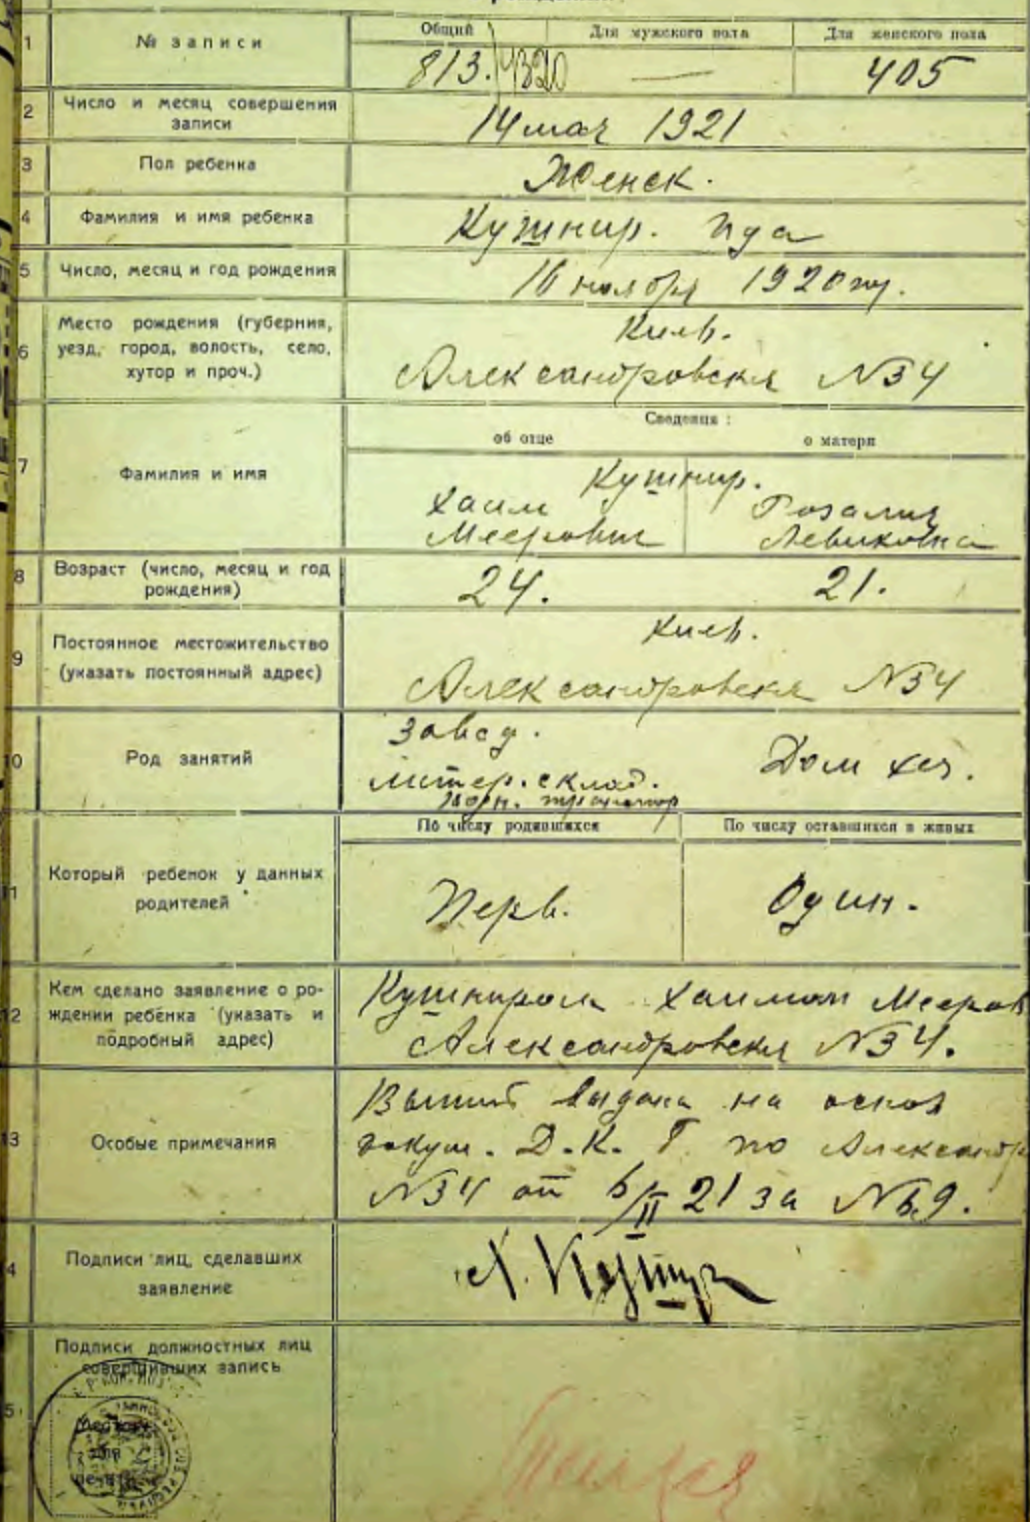 1
№ записи
Общий
Для мужского пола
Для женского пола
813. 4320
—
405
2
Число и месяц совершения
записи
14 мая 1921
3
Пол ребенка
Женск.
4
Фамилия и имя ребенка
Кушнир. Ида
5
Число, месяц и год рождения
16 ноября 1920 г.
6
Место рождения (губерния,
уезд, город, волость, село,
хутор и проч.)
Киев.
Александровская №34
7
Фамилия и имя
Сведения :
об отце
о матери
Кушнир.
Хаим
Меерович
Розалия
Левиковна
8
Возраст (число, месяц и год
рождения)
24.
21.
9
Постоянное местожительство
(указать постоянный адрес)
Киев.
Александровская №34
10
Род занятий
Завед.
склад.
Дом хоз.
11
Который ребенок у данных
родителей
По числу родившихся
По числу оставшихся в живых
Перв.
Один.
12
Кем сделано заявление о ро-
ждении ребёнка (указать и
подробный адрес)
Кушниром Хаимом Мееров
Александровская №34.
13
Особые примечания
выдана на основ
докум. Д.К. по Александр
№34 от 6/II 21 за №69.
14
Подписи лиц, сделавших
заявление
Х. Кушнир
15
Подписи должностных лиц
совершивших запись
Место
для
печати